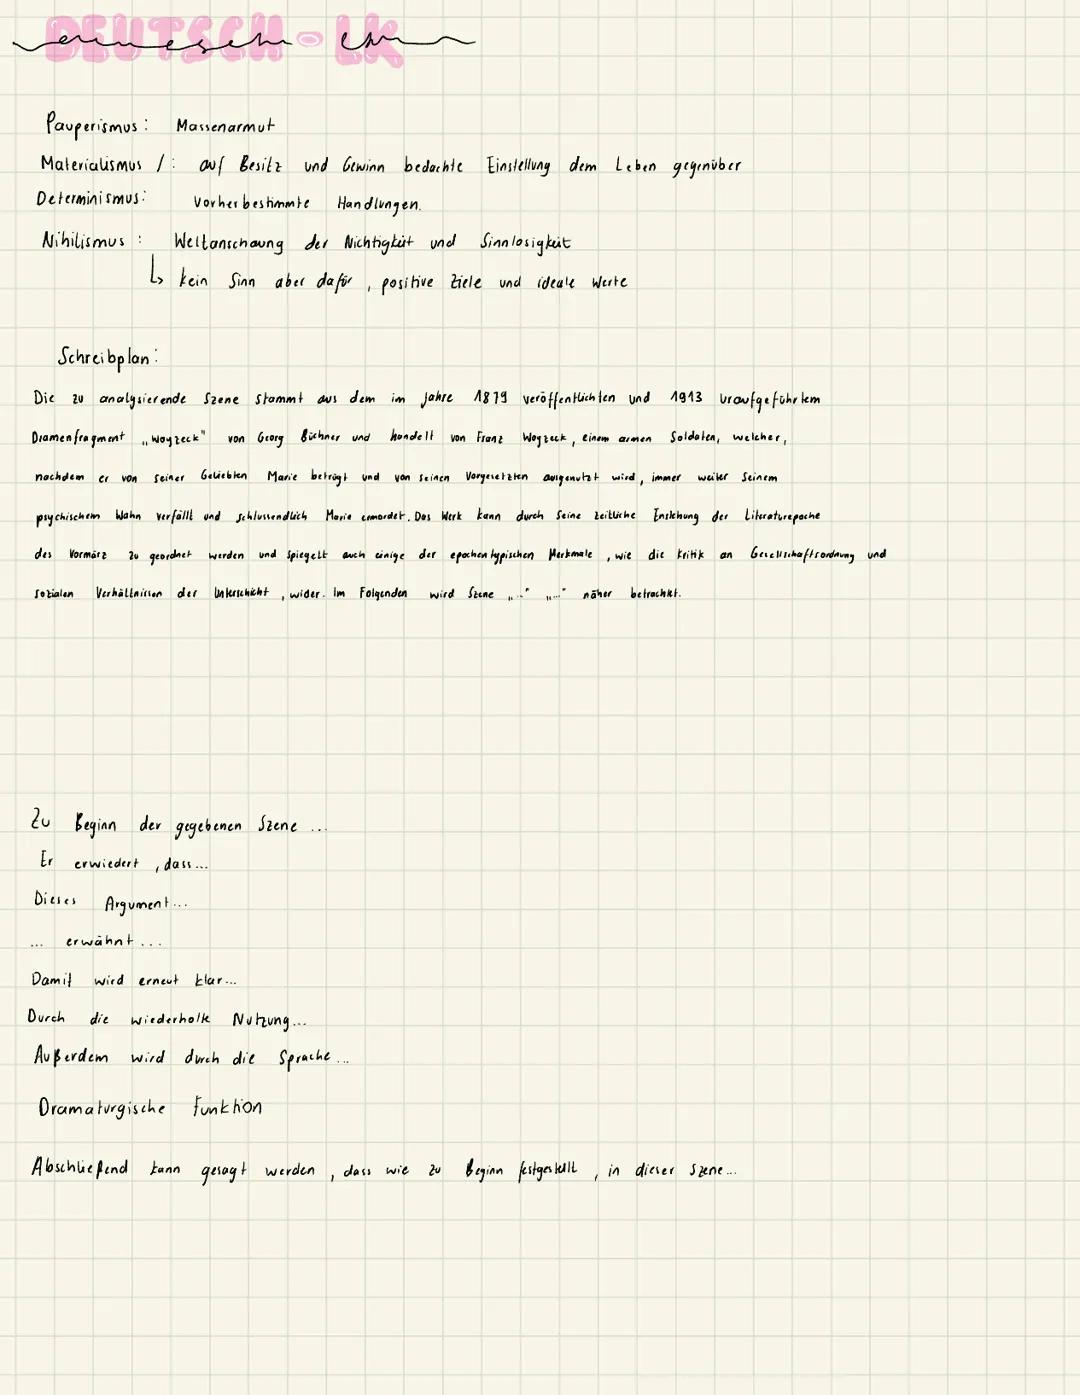 DEUTSCH-LK
Pauperismus: Massenarmut
Materialismus /: auf Besitz und Gewinn bedachte Einstellung dem Leben gegenüber
Determinismus: Vorherbestimmte Handlungen.
Nihilismus: Weltanschaung der Nichtigkeit und Sinnlosigkeit
↳ kein Sinn aber dafür, positive Ziele und ideale Werte
Schreibplan:
Die zu analysierende Szene stammt aus dem im Jahre 1879 veröffentlichten und 1913 uraufgeführtem
Dramenfragment „Woyzeck" von Georg Büchner und handelt von Franz Woyzeck, einem armen Soldaten, welcher,
nachdem er von seiner Geliebten Marie betrügt und von seinen Vorgesetzten ausgenutzt wird, immer weiter seinem
psychischem Wahn verfällt und schlussendlich Marie ermordet. Das Werk kann durch seine zeitliche Enstehung der Literaturepoche
des Vormärz zu geordnet werden und spiegelt auch einige der epochentypischen Merkmale, wie die Kritik an Gesellschaftsordnung und
sozialen Verhältnissen der Unterschicht, wider. Im Folgenden wird Szene „..." „..." näher betrachtet.
Zu Beginn der gegebenen Szene ...
Er erwiedert, dass...
Dieses Argument...
... erwähnt...
Damit wird erneut klar...
Durch die wiederholte Nutzung...
Außerdem wird durch die Sprache...
Dramaturgische Funktion
Abschließend kann gesagt werden, dass wie zu Beginn festgestellt, in dieser Szene...